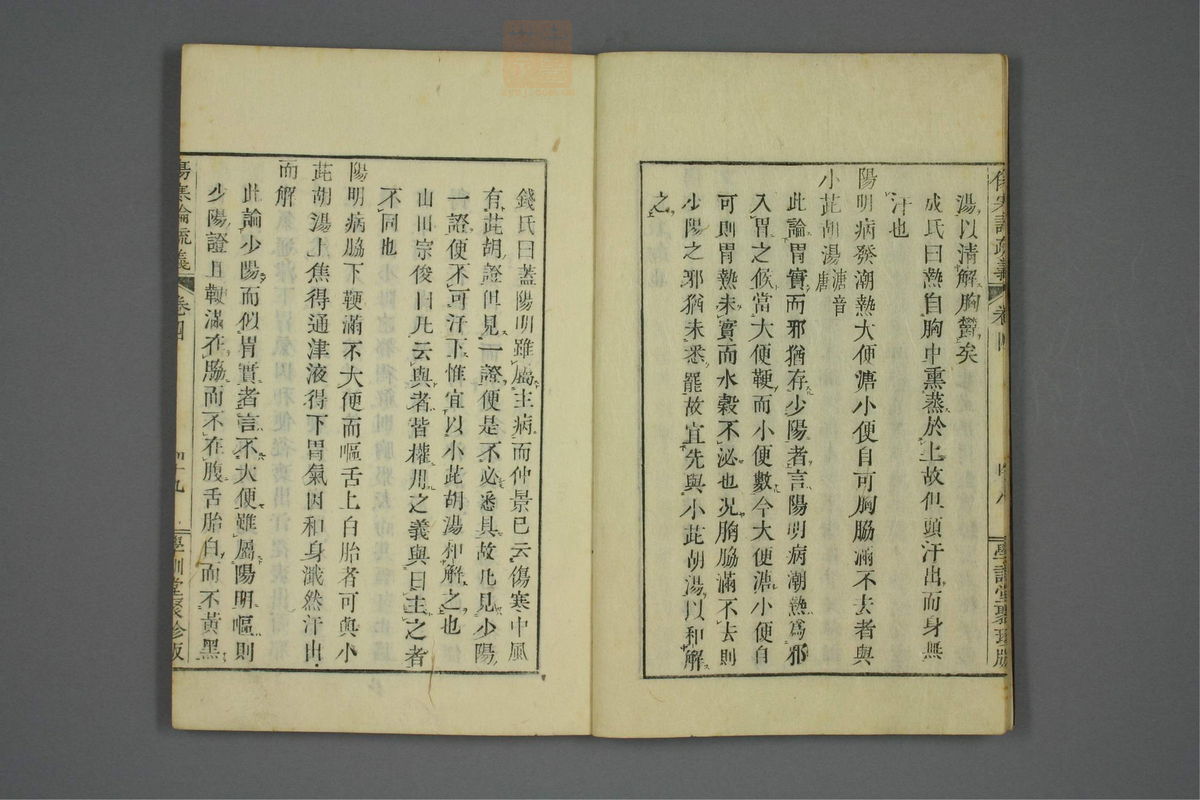 湯以清解胸鬱矣
成氏曰熱自胸中熏蒸於上故但頭汗出而身無
汗也
陽明病發潮熱大便溏小便自可胸脇滿不去者與
小茈胡湯溏音唐
此論胃實而邪猶存少陽者言陽明病潮熱爲邪
入胃之候當大便鞕而小便數今大便溏小便自
可則胃熱未實而水穀不泌也况胸脇滿不去則
少陽之邪猶未悉罷故宜先與小茈胡湯以和解
之
傷寒論疏義
卷四
四十九
學訓堂聚珍版
錢氏曰蓋陽明雖屬主病而仲景已云傷寒中風
有茈胡證但見一證便是不必悉具故凡見少陽
一證便不可汗下惟宜以小茈胡湯和解之也
山田宗俊曰凡云與者皆權用之義與曰主之者
不同也
陽明病脇下鞕滿不大便而嘔舌上白胎者可與小
茈胡湯上焦得通津液得下胃氣因和身濈然汗出
而解
此論少陽而似胃實者言不大便雖屬陽明嘔則
少陽證且鞕滿在脇而不在腹舌胎白而不黃黑